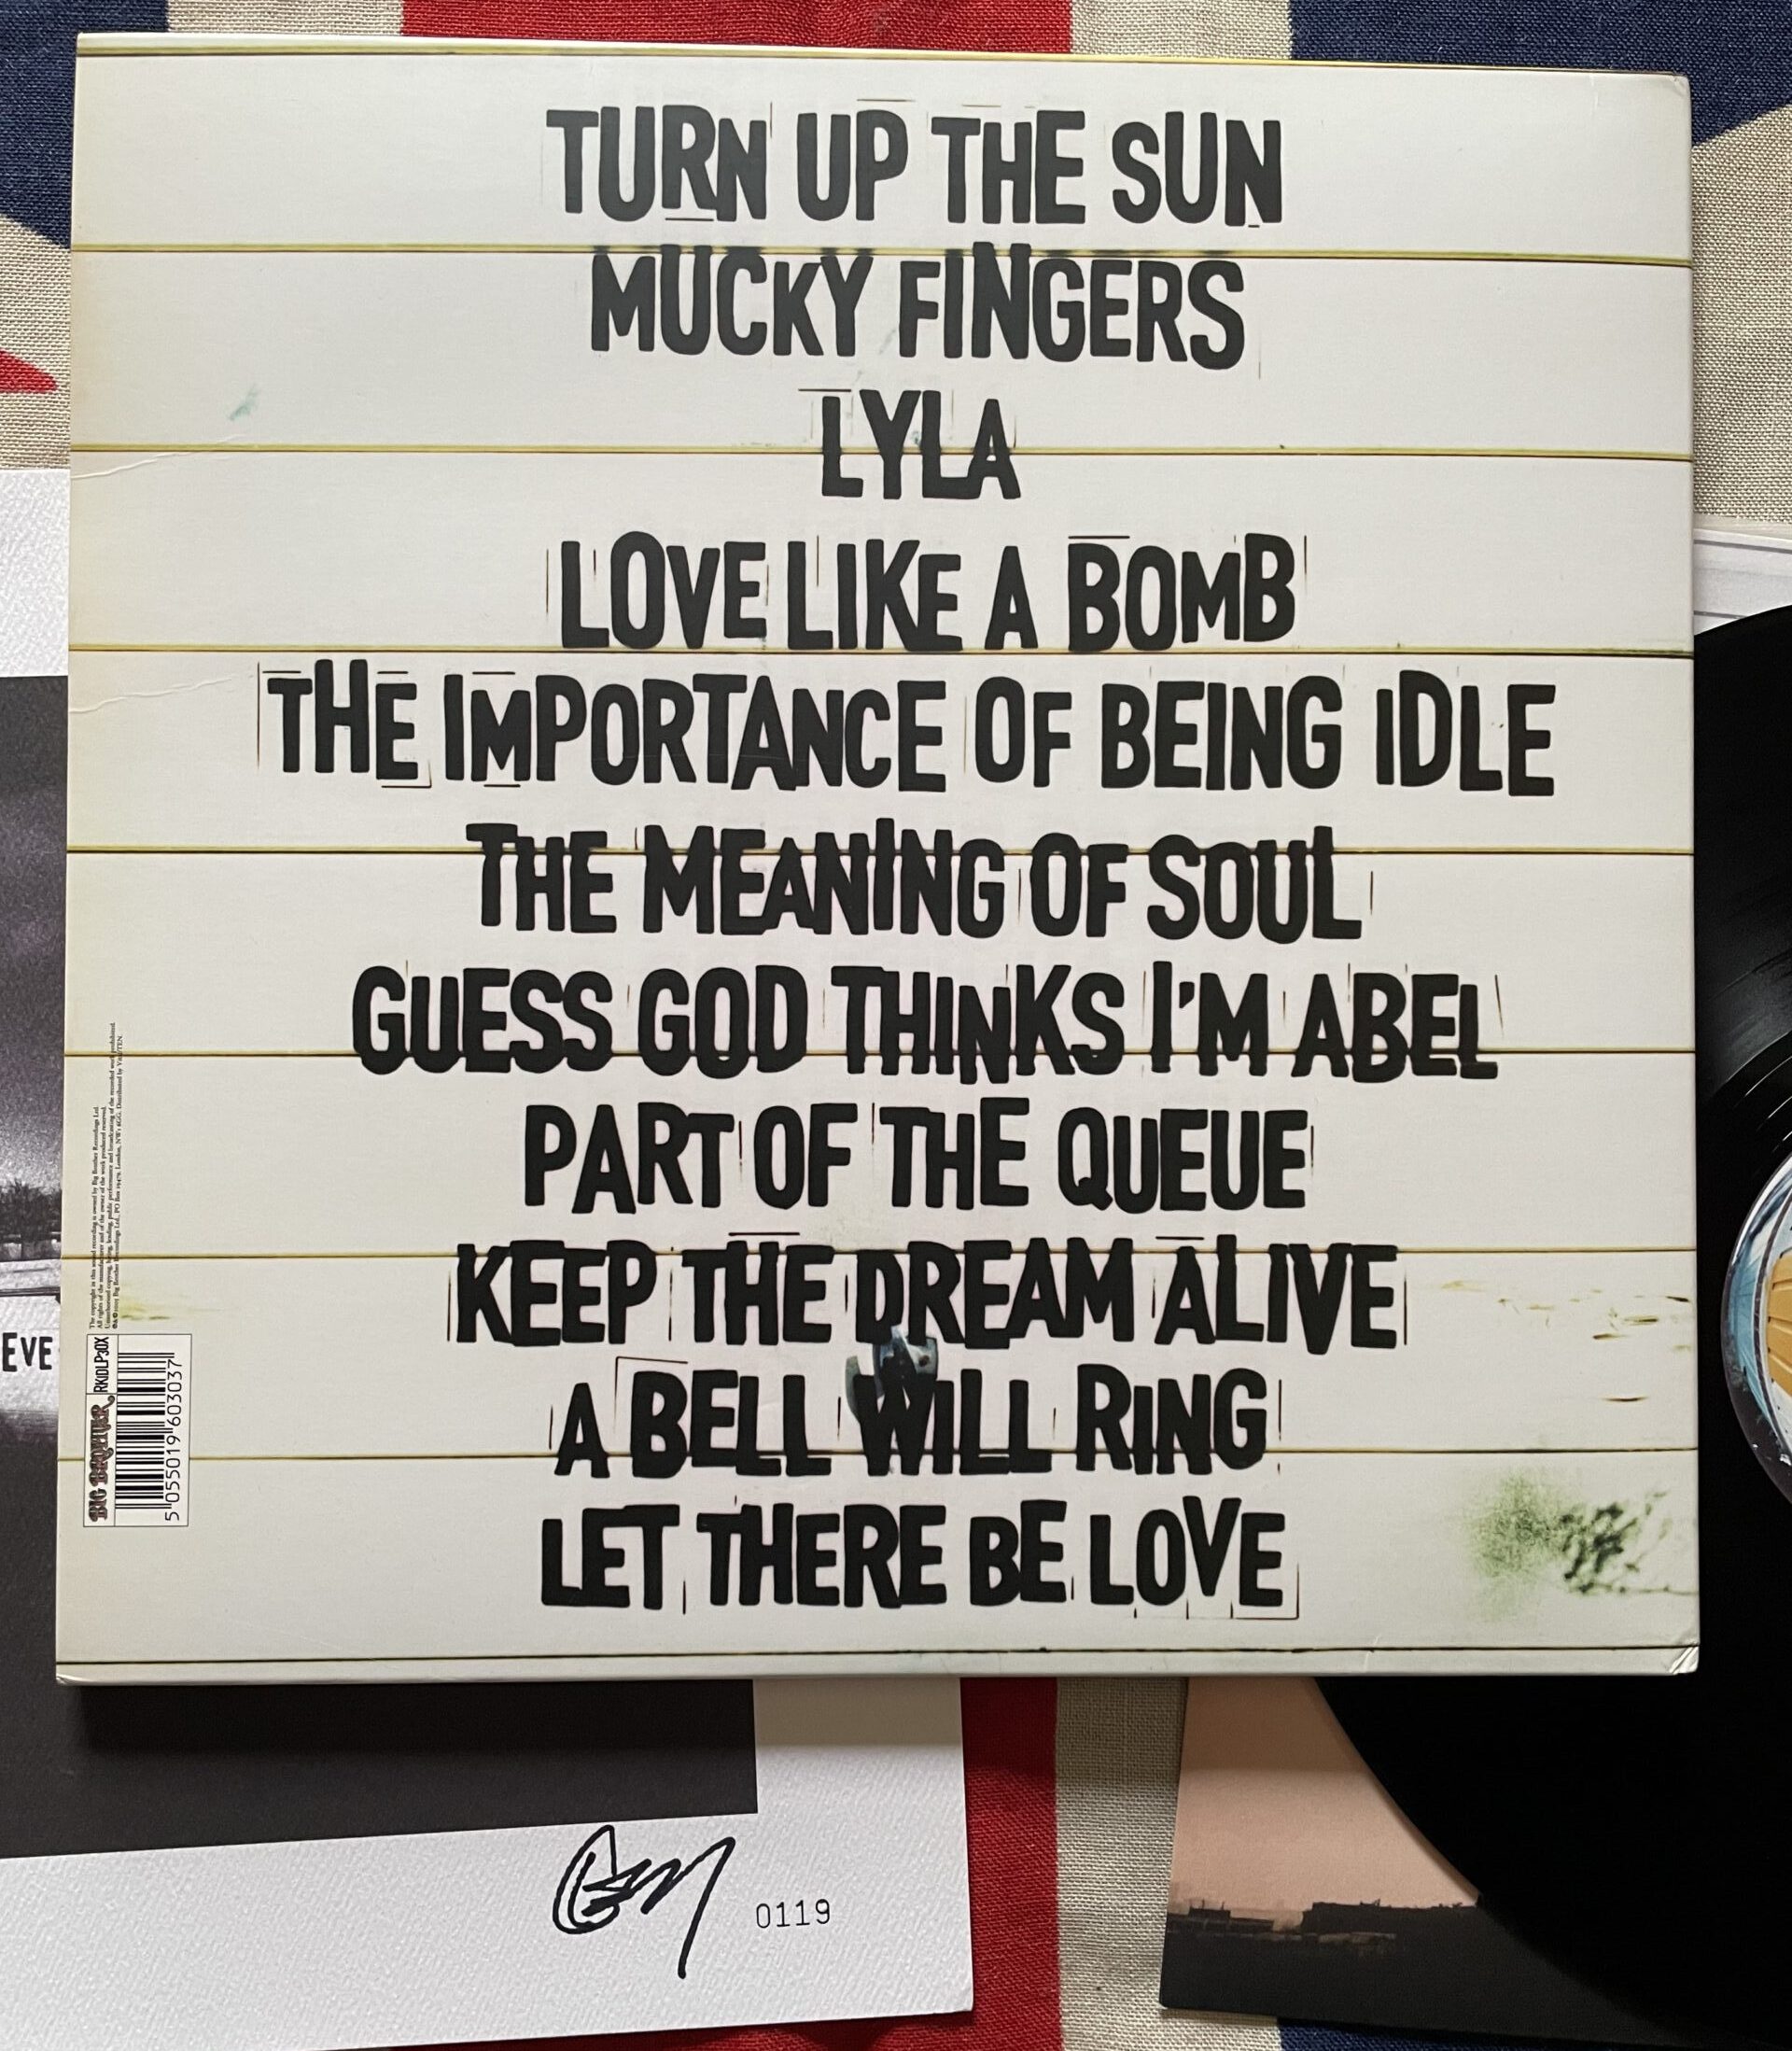 TURN UP THE SUN
MUCKY FINGERS
LYLA
LOVE LIKE A BOMB
THE IMPORTANCE OF BEING IDLE
THE MEANING OF SOUL
GUESS GOD THINKS I'M ABEL
PART OF THE QUEUE
KEEP THE DREAM ALIVE
A BELL WILL RING
LET THERE BE LOVE
The copyright in this sound recording is owned by Big Brother Recordings Ltd.
All rights of the manufacturer and of the owner of the work produced reserved.
Unauthorised copying, hiring, lending, public performance and broadcasting of the recorded work prohibited.
BIG BROTHER
RKIDLP30X
5 055019 603037
EVE
0119